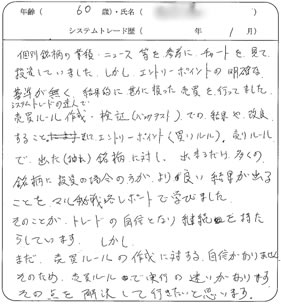 年齢( 60 歳)・氏名(
システムトレード歴( 年 1 月)
個別銘柄の業績・ニュース 等を参考に、チャートを見て
投資していました。しかし エントリーポイントの明確な
基準が無く、結果的に 勘に頼った売買を行ってました。
システムトレードの達人で
売買ルール作成・検証(バックテスト)での結果や、改良
すること エントリーポイント(買いルール)。売りルール
で 出た 銘柄に対し、出来るだけ多くの
銘柄に投資の場合の方が、より良い 結果が出る
ことを 戦略レポートで学びました。
そのことが、トレードの自信となり 継続 を持た
らしています。しかし、
まだ、売買ルールの作成に対する、自信がありません。
そのため、売買ルール での実行の迷いがあります
その点を 解決して行きたいと思います。